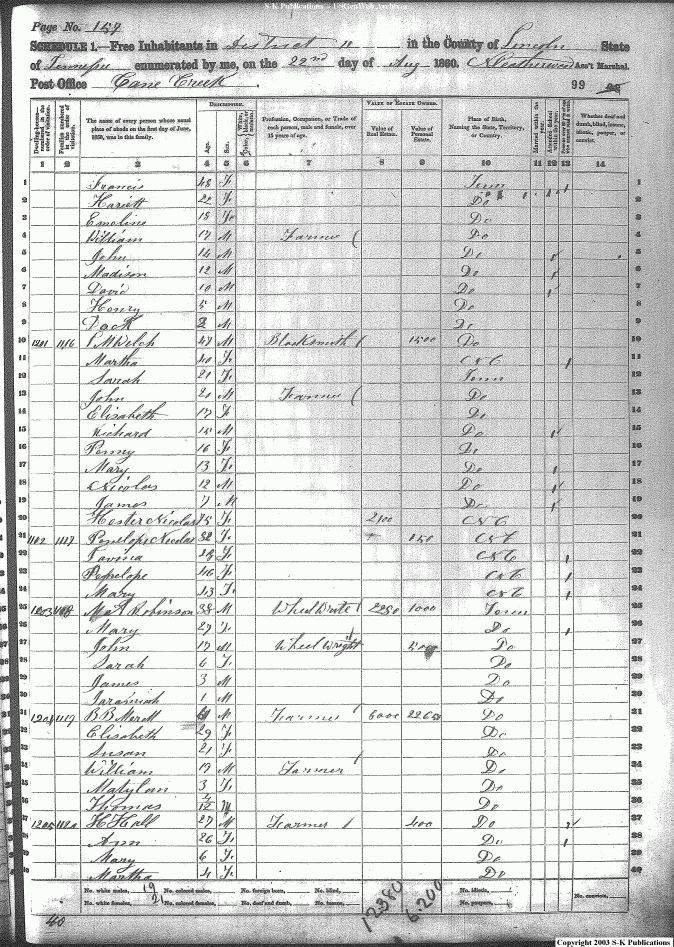 S-K Publications - UsGenWeb Archives
Page No. 157
SCHEDULE 1.—Free Inhabitants in District 11 in the County of Lincoln State
of Tennessee enumerated by me, on the 22nd day of Aug 1860. Ass't Marshal.
Post Office Cane Creek 99
DESCRIPTION. VALUE OF ESTATE OWNED.
Dwelling-houses numbered in the order of visitation. Families numbered in the order of visitation. The name of every person whose usual place of abode on the first day of June, 1860, was in this family. Age. Sex. Profession, Occupation, or Trade of each person, male and female, over 15 years of age. Value of Real Estate. Value of Personal Estate. Place of Birth, Naming the State, Territory, or Country. Married within the year. Attended School within the year. Whether deaf and dumb, blind, insane, idiotic, pauper, or convict.
1 2 3 4 5 6 7 8 9 10 11 12 13 14
1 Francis 48 F Tenn 1
2 Hariett 22 F Do 2
3 Emeline 18 F Do 3
4 William 17 M Farmer Do 4
5 John 14 M Do 5
6 Madison 12 M Do 6
7 David 10 M Do 7
8 Henry 5 M Do 8
9 2 M Do 9
10 1201 1116 Welch 47 M Blacksmith 1500 Do 10
11 Martha 40 F N C 11
12 Sarah 21 F Tenn 12
13 John 21 M Farmer Do 13
14 Elisabeth 17 F Do 14
15 Richard 15 M Do 15
16 Penny 16 F Do 16
17 Mary 13 F Do 17
18 Nicolas 12 M Do 18
19 James 7 M Do 19
20 Hester Nicolas 75 F 2100 N C 20
21 1117 Penelope Nicolas F 150 N C 21
22 F N C 22
23 Penelope 46 F N C 23
24 Mary 43 F N C 24
25 1203 1118 Robinson 38 M Wheel Write 2250 1000 Tenn 25
26 Mary 27 F Do 26
27 John 17 M Wheel Wright 500 Do 27
28 Sarah 6 F Do 28
29 James 3 M Do 29
30 Jaramiah 1 M Do 30
31 1204 1119 B B M Farmer 6000 2265 Do 31
32 Elisabeth 29 F Do 32
33 Susan 21 F Do 33
34 William 19 M Farmer Do 34
35 3 F Do 35
36 Thomas M Do 36
37 1205 1120 H Hall 27 M Farmer 400 Do 37
38 Ann 26 F Do 38
39 Mary 6 F Do 39
40 Martha 4 F Do 40
No. white males, 19 No. colored males, No. foreign born, No. blind, No. idiotic, No. convicts,
No. white females, 21 No. colored females, No. deaf and dumb, No. insane, No. paupers,
12380 6.200
40
Copyright 2003 S-K Publications